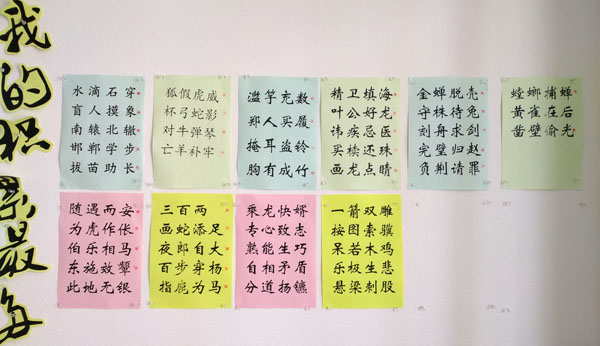 我的积累最
水滴石穿
盲人摸象
南辕北辙
邯郸学步
拔苗助长
狐假虎威
杯弓蛇影
对牛弹琴
亡羊补牢
滥竽充数
郑人买履
掩耳盗铃
胸有成竹
精卫填海
叶公好龙
讳疾忌医
买椟还珠
画龙点睛
金蝉脱壳
守株待兔
刻舟求剑
完璧归赵
负荆请罪
螳螂捕蝉
黄雀在后
凿壁偷光
随遇而安
为虎作伥
伯乐相马
东施效颦
此地无银
三百两
画蛇添足
夜郎自大
百步穿杨
指鹿为马
乘龙快婿
专心致志
熟能生巧
自相矛盾
分道扬镳
一箭双雕
按图索骥
呆若木鸡
乐极生悲
悬梁刺股